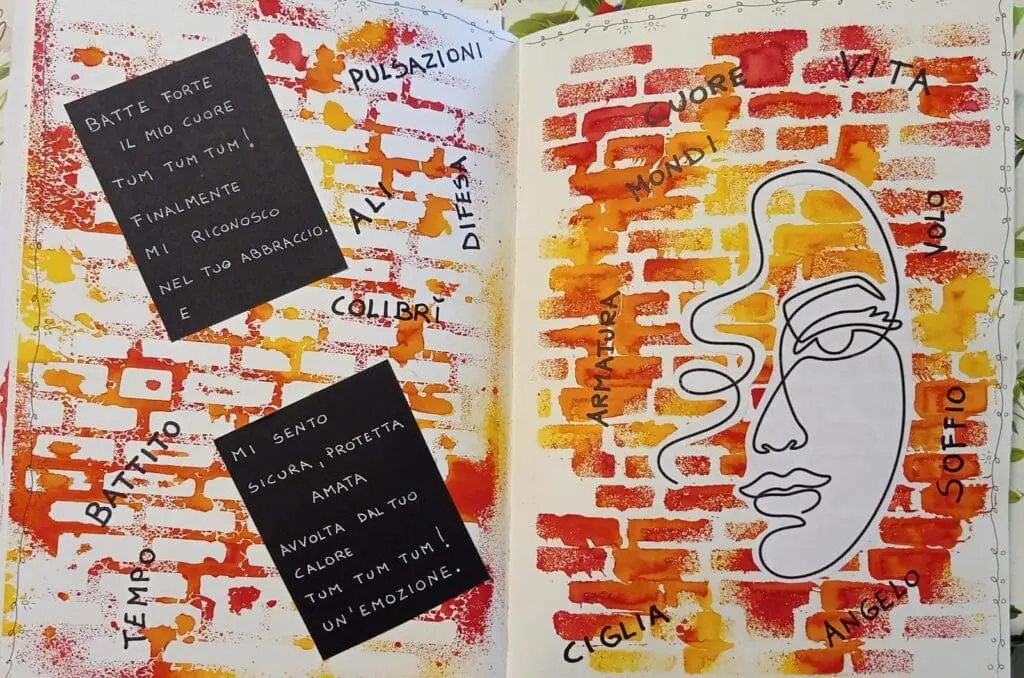 BATTE FORTE
IL MIO CUORE
TUM TUM TUM!
FINALMENTE
MI RICONOSCO
NEL TUO ABBRACCIO.
E
PULSAZIONI
ALI
DIFESA
COLIBRÌ
BATTITO
TEMPO
MI SENTO
SICURA, PROTETTA
AMATA
AVVOLTA DAL TUO
CALORE
TUM TUM TUM!
UN'EMOZIONE.
CUORE
VITA
MONDI
VOLO
ARMATURA
SOFFIO
CIGLIA
ANGELO